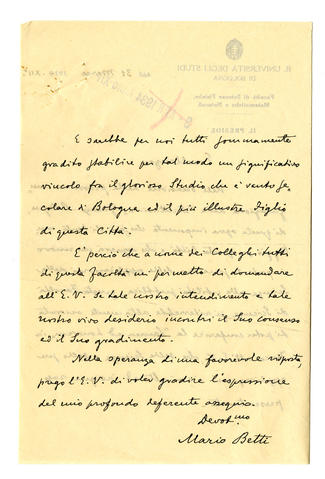 R. UNIVERSITÀ DEGLI STUDI
DI BOLOGNA
Facoltà di Scienze Fisiche,
Matematiche e Naturali
IL PRESIDE
E sarebbe per noi tutti sommamente
gradito stabilire per tal modo un significativo
vincolo fra il glorioso Studio che è vanto se,
colare di Bologna ed il più illustre Figlio
di questa Città.
E perciò che a nome dei Colleghi tutti
di questa Facoltà mi permetto di domandare
all'E.V. se tale nostro intendimento e tale
nostro vivo desiderio incontri il Suo consenso
ed il Suo gradimento.
Nella speranza di una favorevole risposta,
prego l'E.V. di voler gradire l'espressione
del mio profondo deferente ossequio.
Devot.mo
Mario Betti